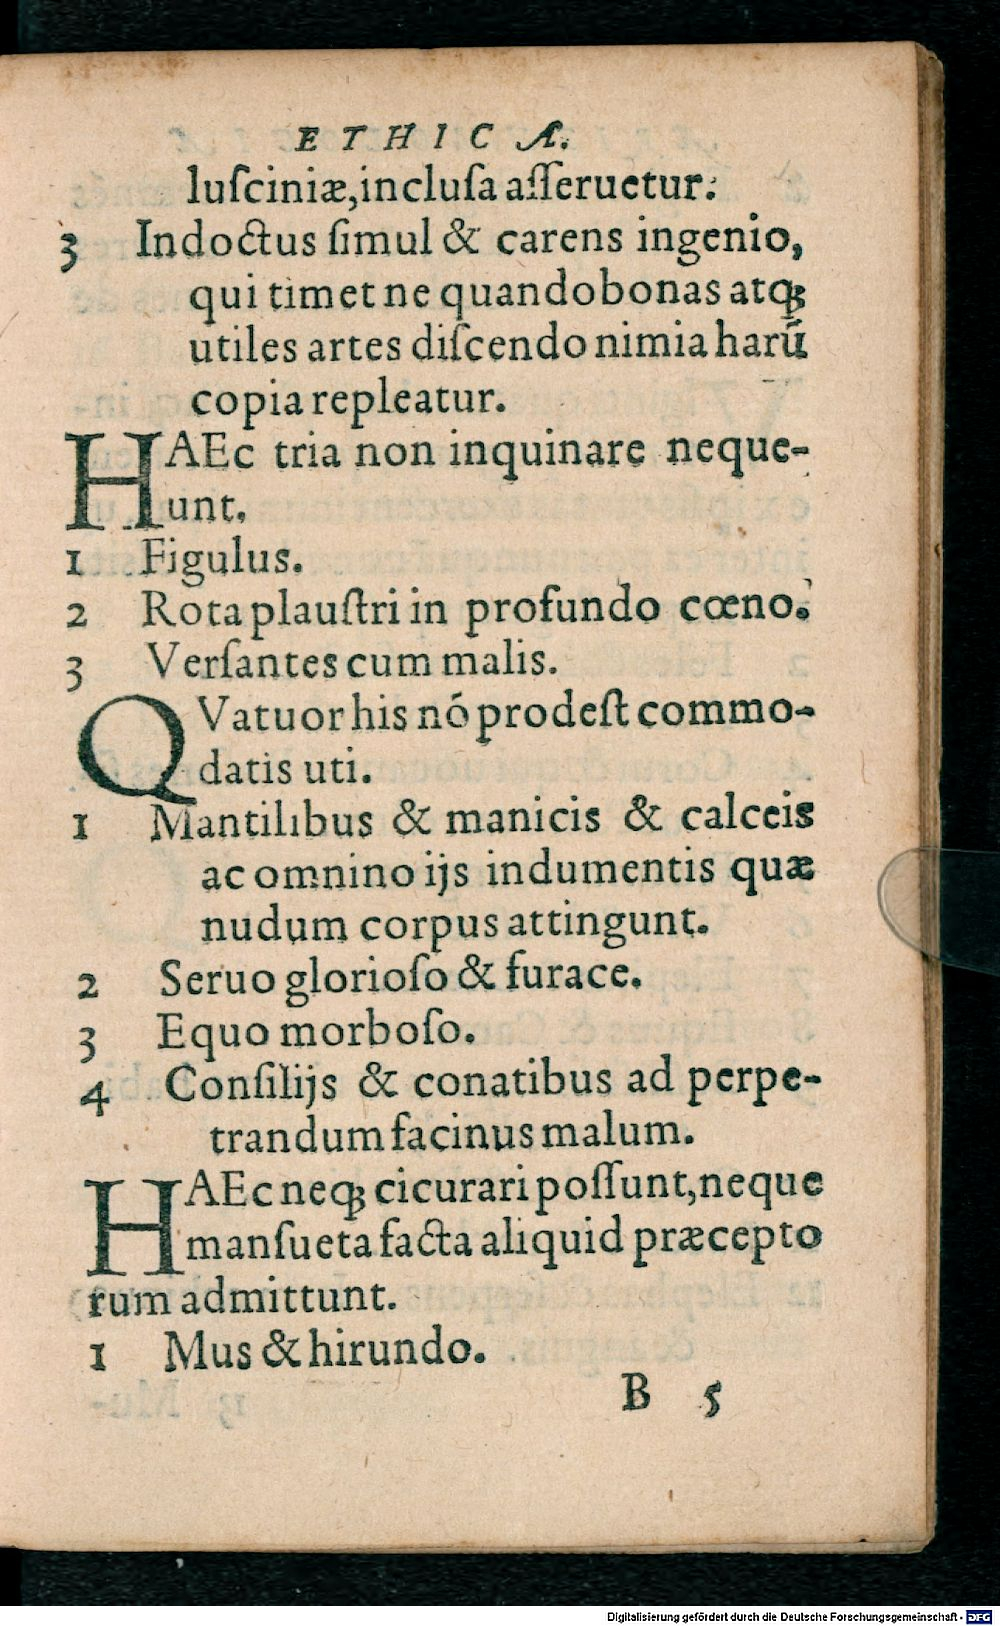 ETHICÆ.
luſciniæ, incluſa aſſeruetur.
3 Indoctus ſimul & carens ingenio,
qui timet ne quando bonas atq;
utiles artes diſcendo nimia harū
copia repleatur.
HAEc tria non inquinare neque-
unt.
1 Figulus.
2 Rota plauſtri in profundo cœno.
3 Verſantes cum malis.
QVatuor his nō prodeſt commo-
datis uti.
1 Mantilibus & manicis & calceis
ac omnino ijs indumentis quæ
nudum corpus attingunt.
2 Seruo glorioſo & furace.
3 Equo morboſo.
4 Conſilijs & conatibus ad perpe-
trandum facinus malum.
HAEc neq; cicurari poſſunt, neque
manſueta facta aliquid præcepto
rum admittunt.
1 Mus & hirundo.
B 5
Digitalisierung gefördert durch die Deutsche Forschungsgemeinschaft - DFG